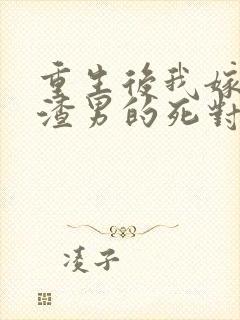 重生後我嫁
渣男的死對
凌子